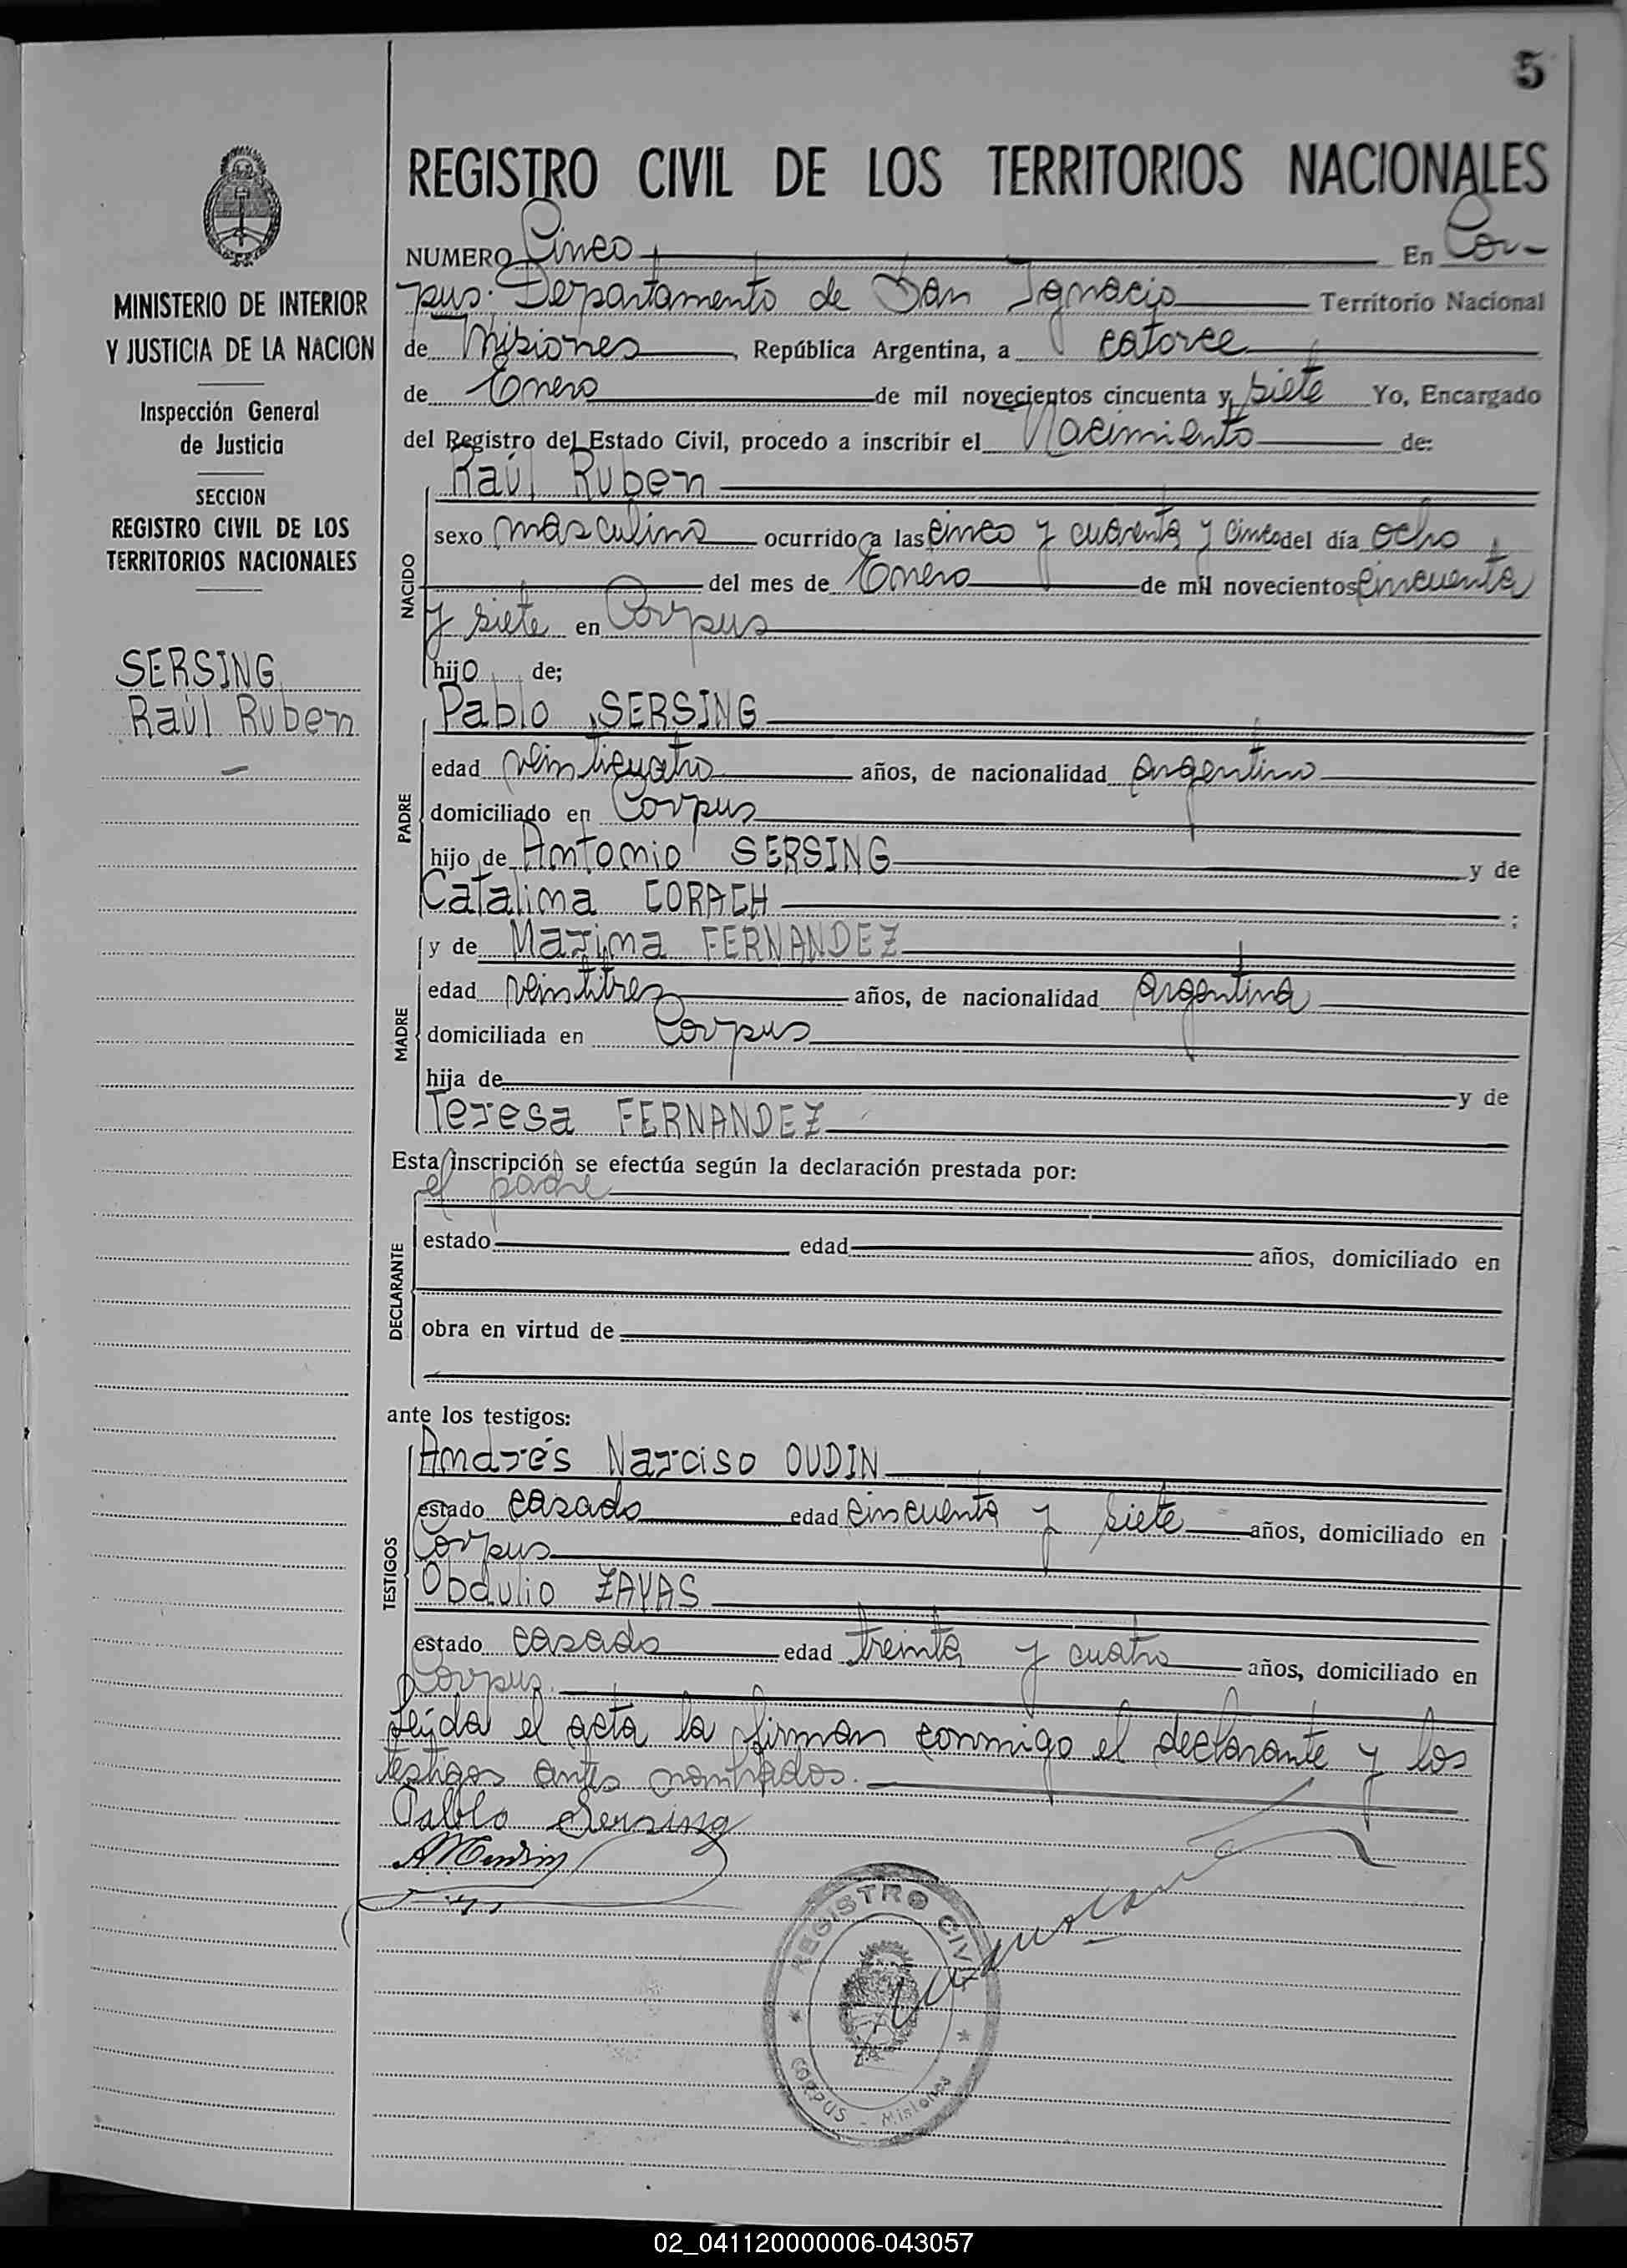 5
REGISTRO CIVIL DE LOS TERRITORIOS NACIONALES
NUMERO Cinco En Cor-
pus. Departamento de San Ignacio Territorio Nacional
de Misiones, República Argentina, a catorce
de Enero de mil novecientos cincuenta y siete Yo, Encargado
del Registro del Estado Civil, procedo a inscribir el Nacimiento de:
Raúl Ruben
sexo masculino ocurrido a las cinco y cuarenta y cinco del día ocho
del mes de Enero de mil novecientos cincuenta
y siete en Corpus
hijo de;
NACIDO
Pablo SERSING
edad veinticuatro años, de nacionalidad Argentino
domiciliado en Corpus
hijo de Antonio SERSING y de
Catalina CORACH ;
PADRE
y de Maxima FERNANDEZ
edad veintitres años, de nacionalidad Argentina
domiciliada en Corpus
hija de y de
Teresa FERNANDEZ
MADRE
Esta inscripción se efectúa según la declaración prestada por:
el padre
estado edad años, domiciliado en
obra en virtud de
DECLARANTE
ante los testigos:
Andrés Narciso OUDIN
estado casado edad cincuenta y siete años, domiciliado en
Corpus
Obdulio ZAYAS
estado casado edad treinta y cuatro años, domiciliado en
Corpus.
TESTIGOS
Leída el acta la firman conmigo el declarante y los
testigos antes nombrados.
Pablo Sersing
REGISTRO CIVIL
CORPUS - Misiones
MINISTERIO DE INTERIOR
Y JUSTICIA DE LA NACION
Inspección General
de Justicia
SECCION
REGISTRO CIVIL DE LOS
TERRITORIOS NACIONALES
SERSING
Raúl Ruben
02_041120000006-043057